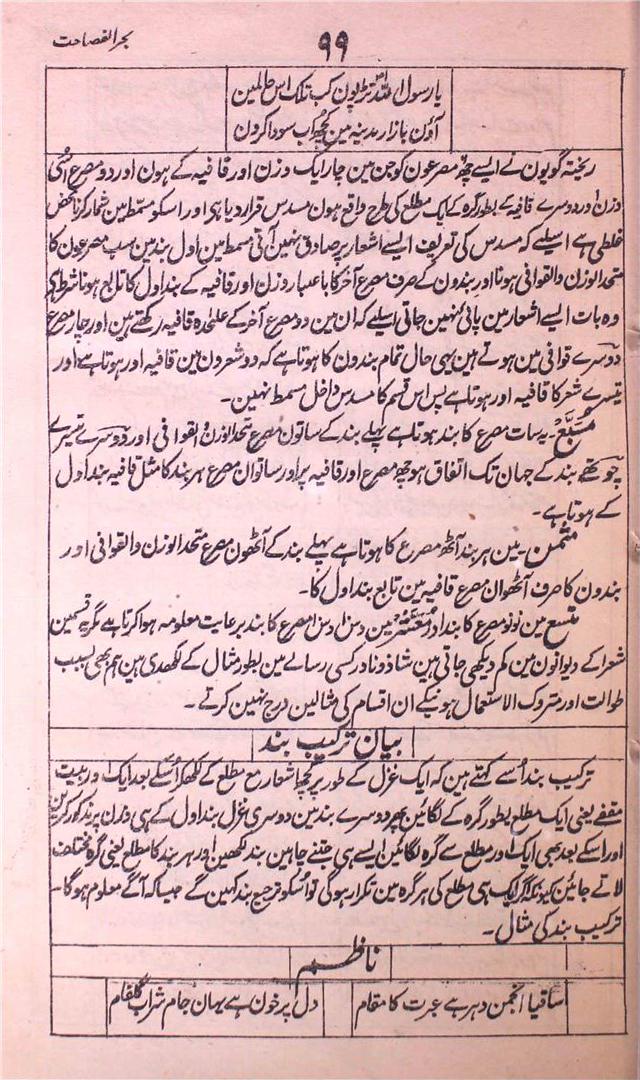 بحر الفصاحت
۹۹
یا رسول اللہ تڑپون کب تلک اس حالمین
آؤن بازار مدینہ مین کچھ اب سودا کرون
ریختہ گویون نے ایسے چھ مصرعون کو جن مین چار ایک وزن اور قافیہ کے ہون اور دو مصرع اسی
وزن اور دوسرے قافیہ کے بطور گرہ کے ایک مطلع کی طرح واقع ہون مسدس قرار دیا ہی اور اسکو مسمط مین شمار کرنا محض
غلطی ہے اسلیے کہ مسدس کی تعریف ایسے اشعار پر صادق نہین آتی مسمط مین اول بند مین سب مصرعون کا
متحد الوزن والقوافی ہونا اور بندون کے صرف مصرع آخر کا باعتبار وزن اور قافیہ کے بند اول کا تابع ہونا شرط ہی
وہ بات ایسے اشعار مین پائی نہین جاتی اسلیے کہ ان مین دو مصرع آخر کے علیحدہ قافیہ رکھتے ہین اور چار مصرع
دوسرے قوافی مین ہوتے ہین یہی حال تمام بندون کا ہوتا ہے کہ دو شعرون مین قافیہ اور ہوتا ہے اور
تیسرے شعر کا قافیہ اور ہوتا ہے پس اس قسم کا مسدس داخل مسمط نہین۔
مُسَبَّع۔ یہ سات مصرع کا بند ہوتا ہے پہلے بند کے ساتون مصرع متحد الوزن و القوافی اور دوسرے تیسرے
چوتھے بند کے جہان تک اتفاق ہو چھ مصرع اور قافیہ پر اور ساتوان مصرع ہر بند کا مثل قافیہ بند اول
کے ہوتا ہے۔
مثمن۔ مین ہر بند آٹھ مصرع کا ہوتا ہے پہلے بند کے آٹھون مصرع متحد الوزن والقوافی اور
بندون کا صرف آٹھوان مصرع قافیہ مین تابع بند اول کا۔
متسع مین نو نو مصرع کا بند اور مُعَشَّر مین دس دس مصرع کا بند برعایت معلومہ ہوا کرتا ہے مگر یہ قسمین
شعرا کے دیوانون مین کم دیکھی جاتی ہین شاذ و نادر کسی رسالے مین بطور مثال کے لکھدی ہین ہم بھی بسبب
طوالت اور متروک الاستعمال ہونیکے ان اقسام کی مثالین درج نہین کرتے۔
بیان ترکیب بند
ترکیب بند اُسے کہتے ہین کہ ایک غزل کے طور پر کچھ اشعار مع مطلع کے لکھکر اُسکے بعد ایک اور بیت
مقفے یعنی ایک مطلع بطور گرہ کے لگائین پھر دوسرے بند مین دوسری غزل بند اول کے ہی وزن پر مذکور کرین
اور اسکے بعد بھی ایک اور مطلع سے گرہ لگائین ایسے ہی جتنے چاہین بند لکھین اور ہر بند کا مطلع یعنی گرہ مختلف
لاتے جائین کیونکہ اگر ایک ہی مطلع کی ہر گرہ مین تکرار ہوگی تو اُسکو ترجیع بند کہین گے جیسا کہ آگے معلوم ہوگا۔
ترکیب بند کی مثال۔
ناظم
ساقیا انجمن دہر ہے عبرت کا مقام دل پر خون ہے یہان جام شراب گلفام